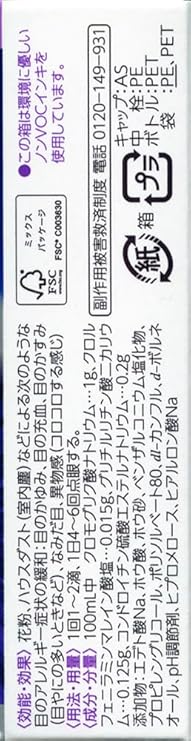 〈効能・効果〉花粉、ハウスダスト（室内塵）などによる次のような
目のアレルギー症状の緩和：目のかゆみ、目の充血、目のかすみ
（目やにの多いときなど）、なみだ目、異物感（コロコロする感じ）
〈用法・用量〉1回1〜2滴、1日4〜6回点眼する。
〈成分・分量〉100mL中　クロモグリク酸ナトリウム…1g、クロル
フェニラミンマレイン酸塩…0.015g、グリチルリチン酸二カリウ
ム…0.125g、コンドロイチン硫酸エステルナトリウム…0.2g
添加物：エデト酸Na、ホウ酸、ホウ砂、ベンザルコニウム塩化物、
プロピレングリコール、ポリソルベート80、dl-カンフル、d-ボルネ
オール、pH調節剤、ヒプロメロース、ヒアルロン酸Na
ミックス
パッケージ
FSC
FSC® C003830
副作用被害救済制度 電話 0120-149-931
紙
箱
プラ
キャップ：AS
中栓：PE
ボトル：PET
：PE、PET
●この箱は環境に優しい
ノンVOCインキを
使用しています。